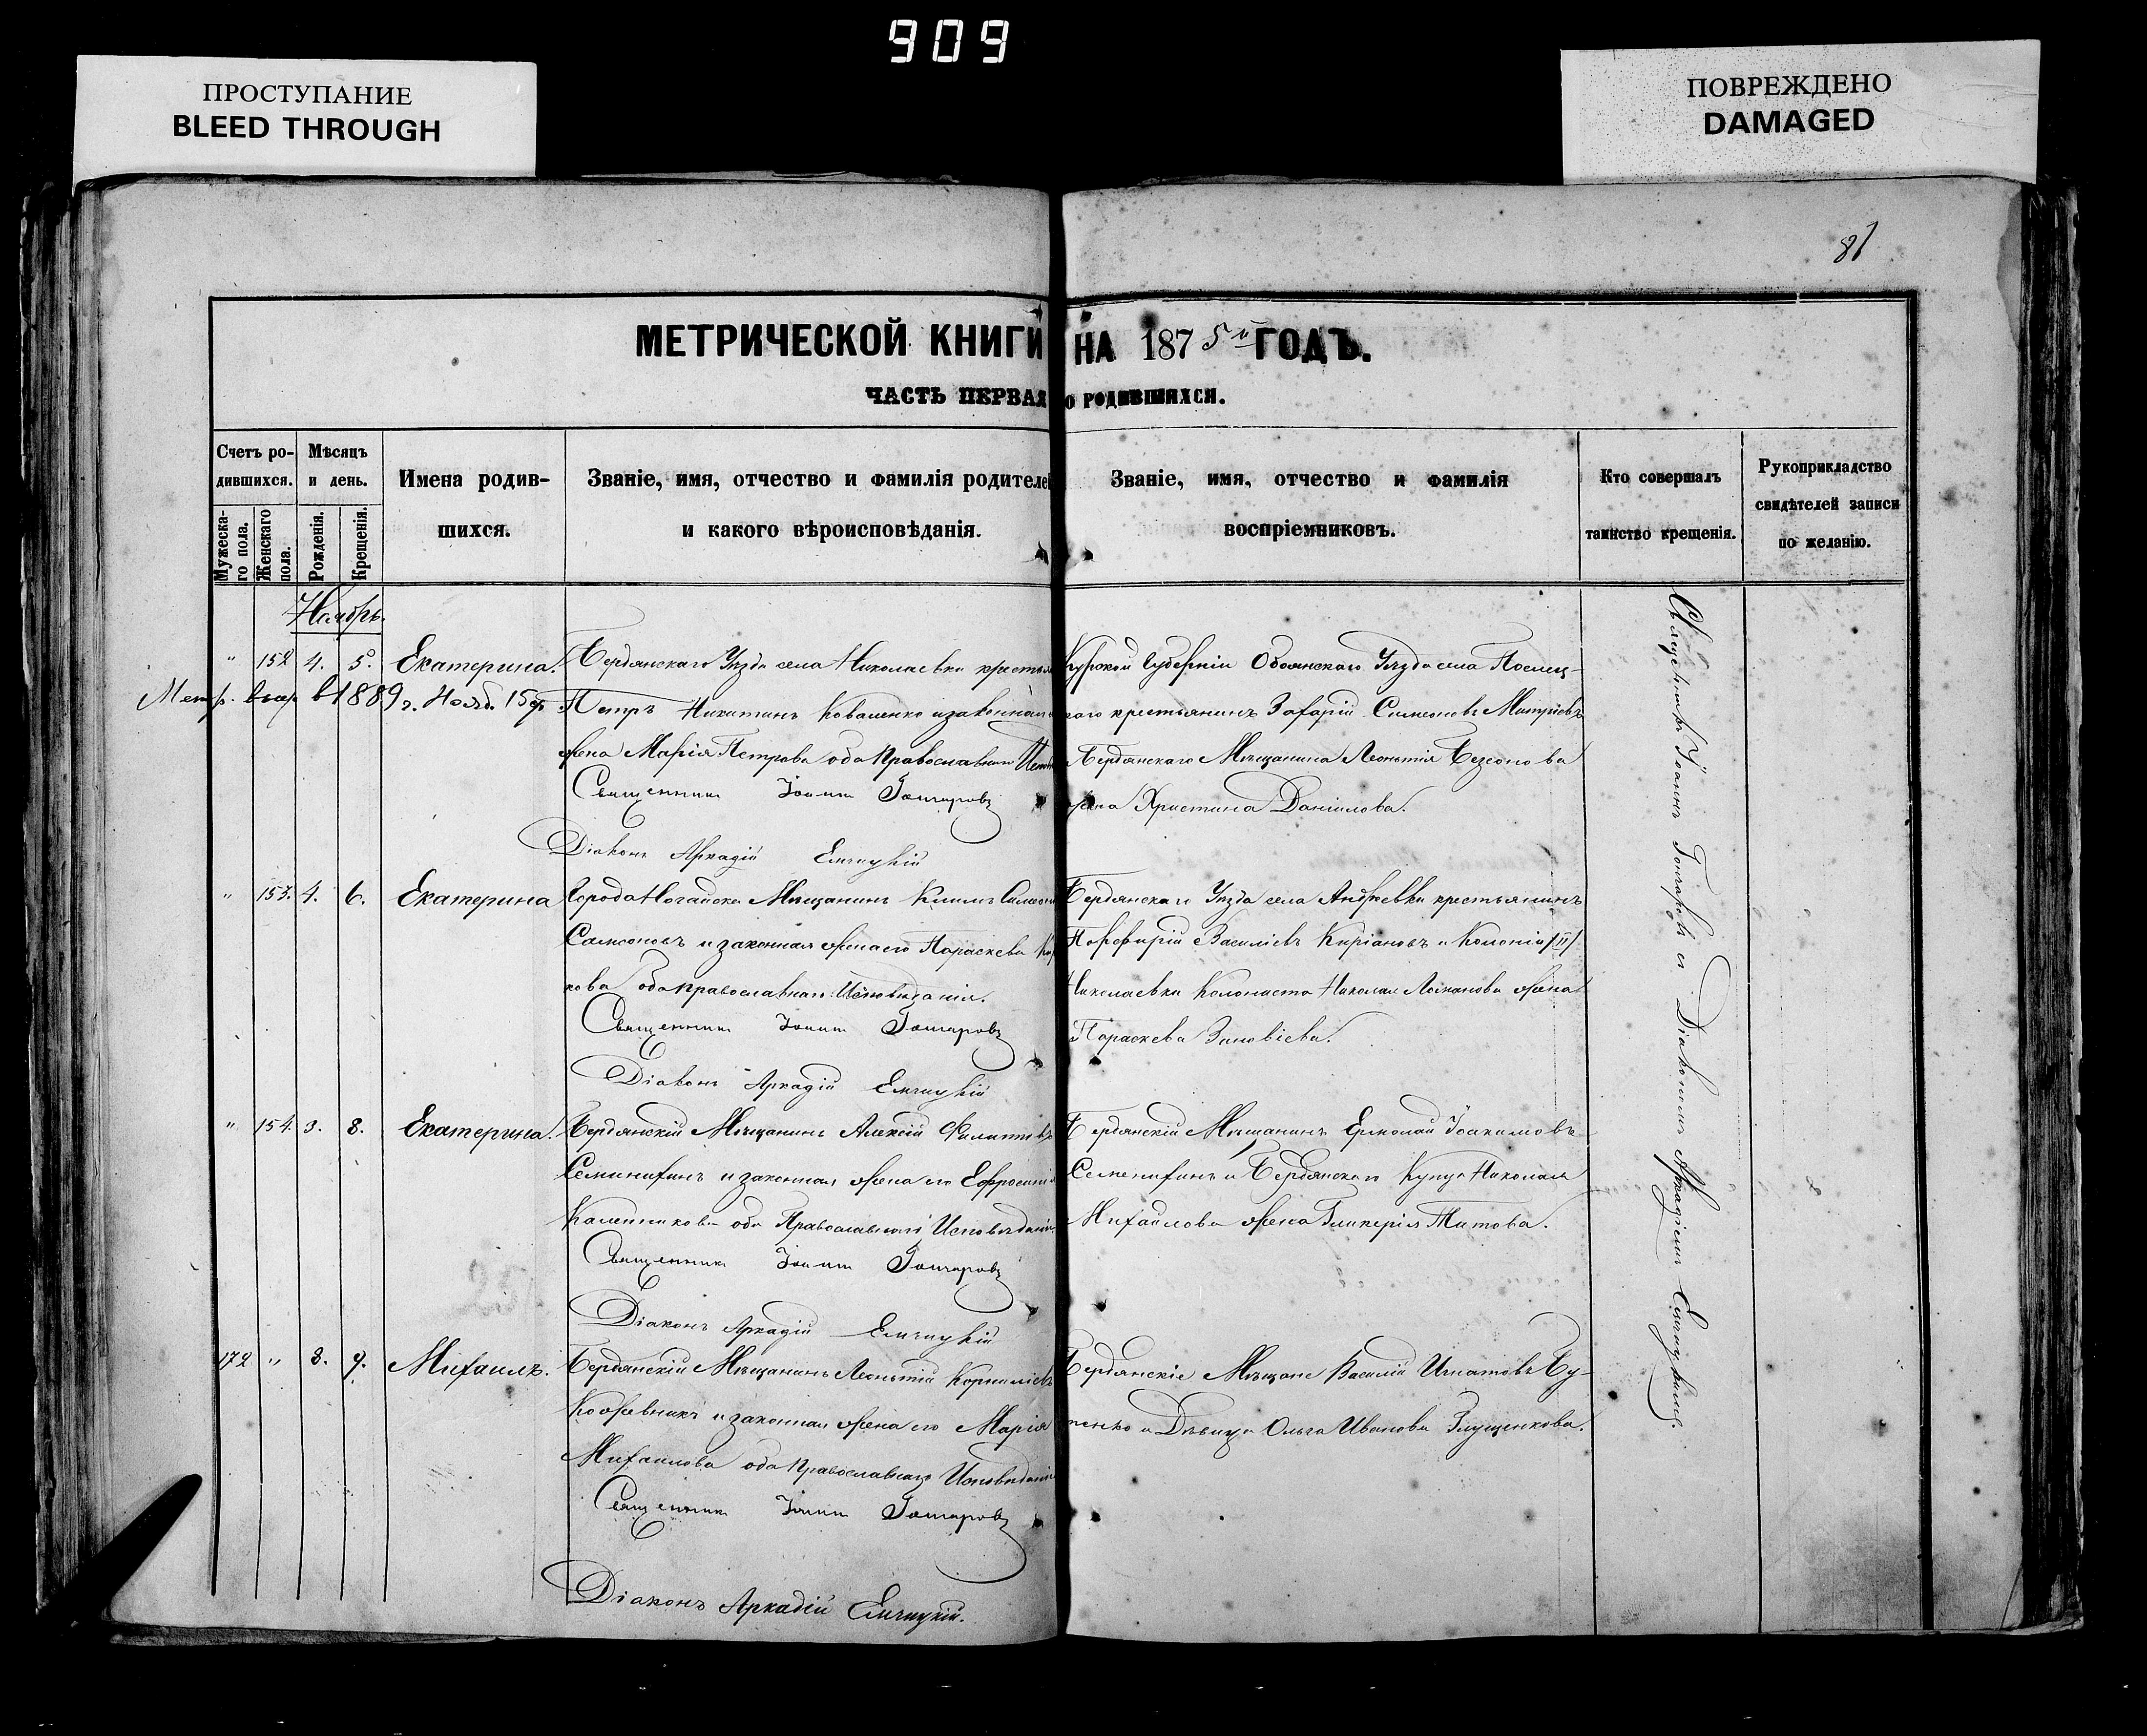 909
ПРОСТУПАНИЕ
BLEED THROUGH
ПОВРЕЖДЕНО
DAMAGED
81
МЕТРИЧЕСКОЙ КНИГИ НА 1875й ГОДЪ.
ЧАСТЬ ПЕРВАЯ О РОДИВШИХСЯ.
Счетъ ро-
дившихся.
Мужеска-
го пола.
Женскаго
пола.
Мѣсяцъ
и день.
Рожденія.
Крещенія.
Имена родив-
шихся.
Званіе, имя, отчество и фамилія родителей
и какого вѣроисповѣданія.
Званіе, имя, отчество и фамилія
воспріемниковъ.
Кто совершалъ
таинство крещенія.
Рукоприкладство
свидѣтелей записи
по желанію.
Ноябрь.
" 152 4. 5. Екатерина.
Метр. выд. в 1889 г. Нояб. 15 д.
Бердянскаго Уезда села Николаевки крестья
Петръ Никитинъ Коваленко и законная
жена Марія Петрова оба Православнаго
Священникъ Іоаннъ Гончаровъ
Діаконъ Аркадій Емчицкій
Курской Губерніи Обоянскаго Уезда села
каго крестьянинъ Захарій Симеоновъ
Бердянскаго Мѣщанина Леонтія
жена Христина Даніилова.
" 153. 4. 6. Екатерина
Города Ногайска Мѣщанинъ Климъ
Самсоновъ и законная жена его Параскева
кова оба православнаго Исповѣданія.
Священникъ Іоаннъ Гончаровъ
Діаконъ Аркадій Емчицкій
Бердянскаго Уезда села Андреевки крестьянинъ
Порфирій Василіевъ Киріановъ и Колоніи /II/
Николаевки Колониста Николая жена
Параскева Зиновіева.
" 154. 3. 8. Екатерина.
Бердянскій Мѣщанинъ Алексій Филиповъ
Семинихинъ и законная жена его Ефросинія
Калинникова оба Православнаго Исповѣданія
Священникъ Іоаннъ Гончаровъ
Діаконъ Аркадій Емчицкій
Бердянскій Мѣщанинъ Ермолай Іоакимовъ
Семенихинъ и Бердянскаго Купца Николая
Михайлова жена Гликерія Титова.
172 " 8. 9. Михаилъ.
Бердянскій Мѣщанинъ Леонтій Корниліевъ
Кожевникъ и законная жена его Марія
Михаилова оба православнаго Исповѣданія
Священникъ Іоаннъ Гончаровъ
Діаконъ Аркадій Емчицкій.
Бердянскіе Мѣщане Василій Игнатовъ Бу-
тенко и Дѣвица Ольга Иванова Глущенкова.
Священникъ Іоаннъ Гончаровъ съ Діакономъ Аркадіемъ Емчицкимъ.